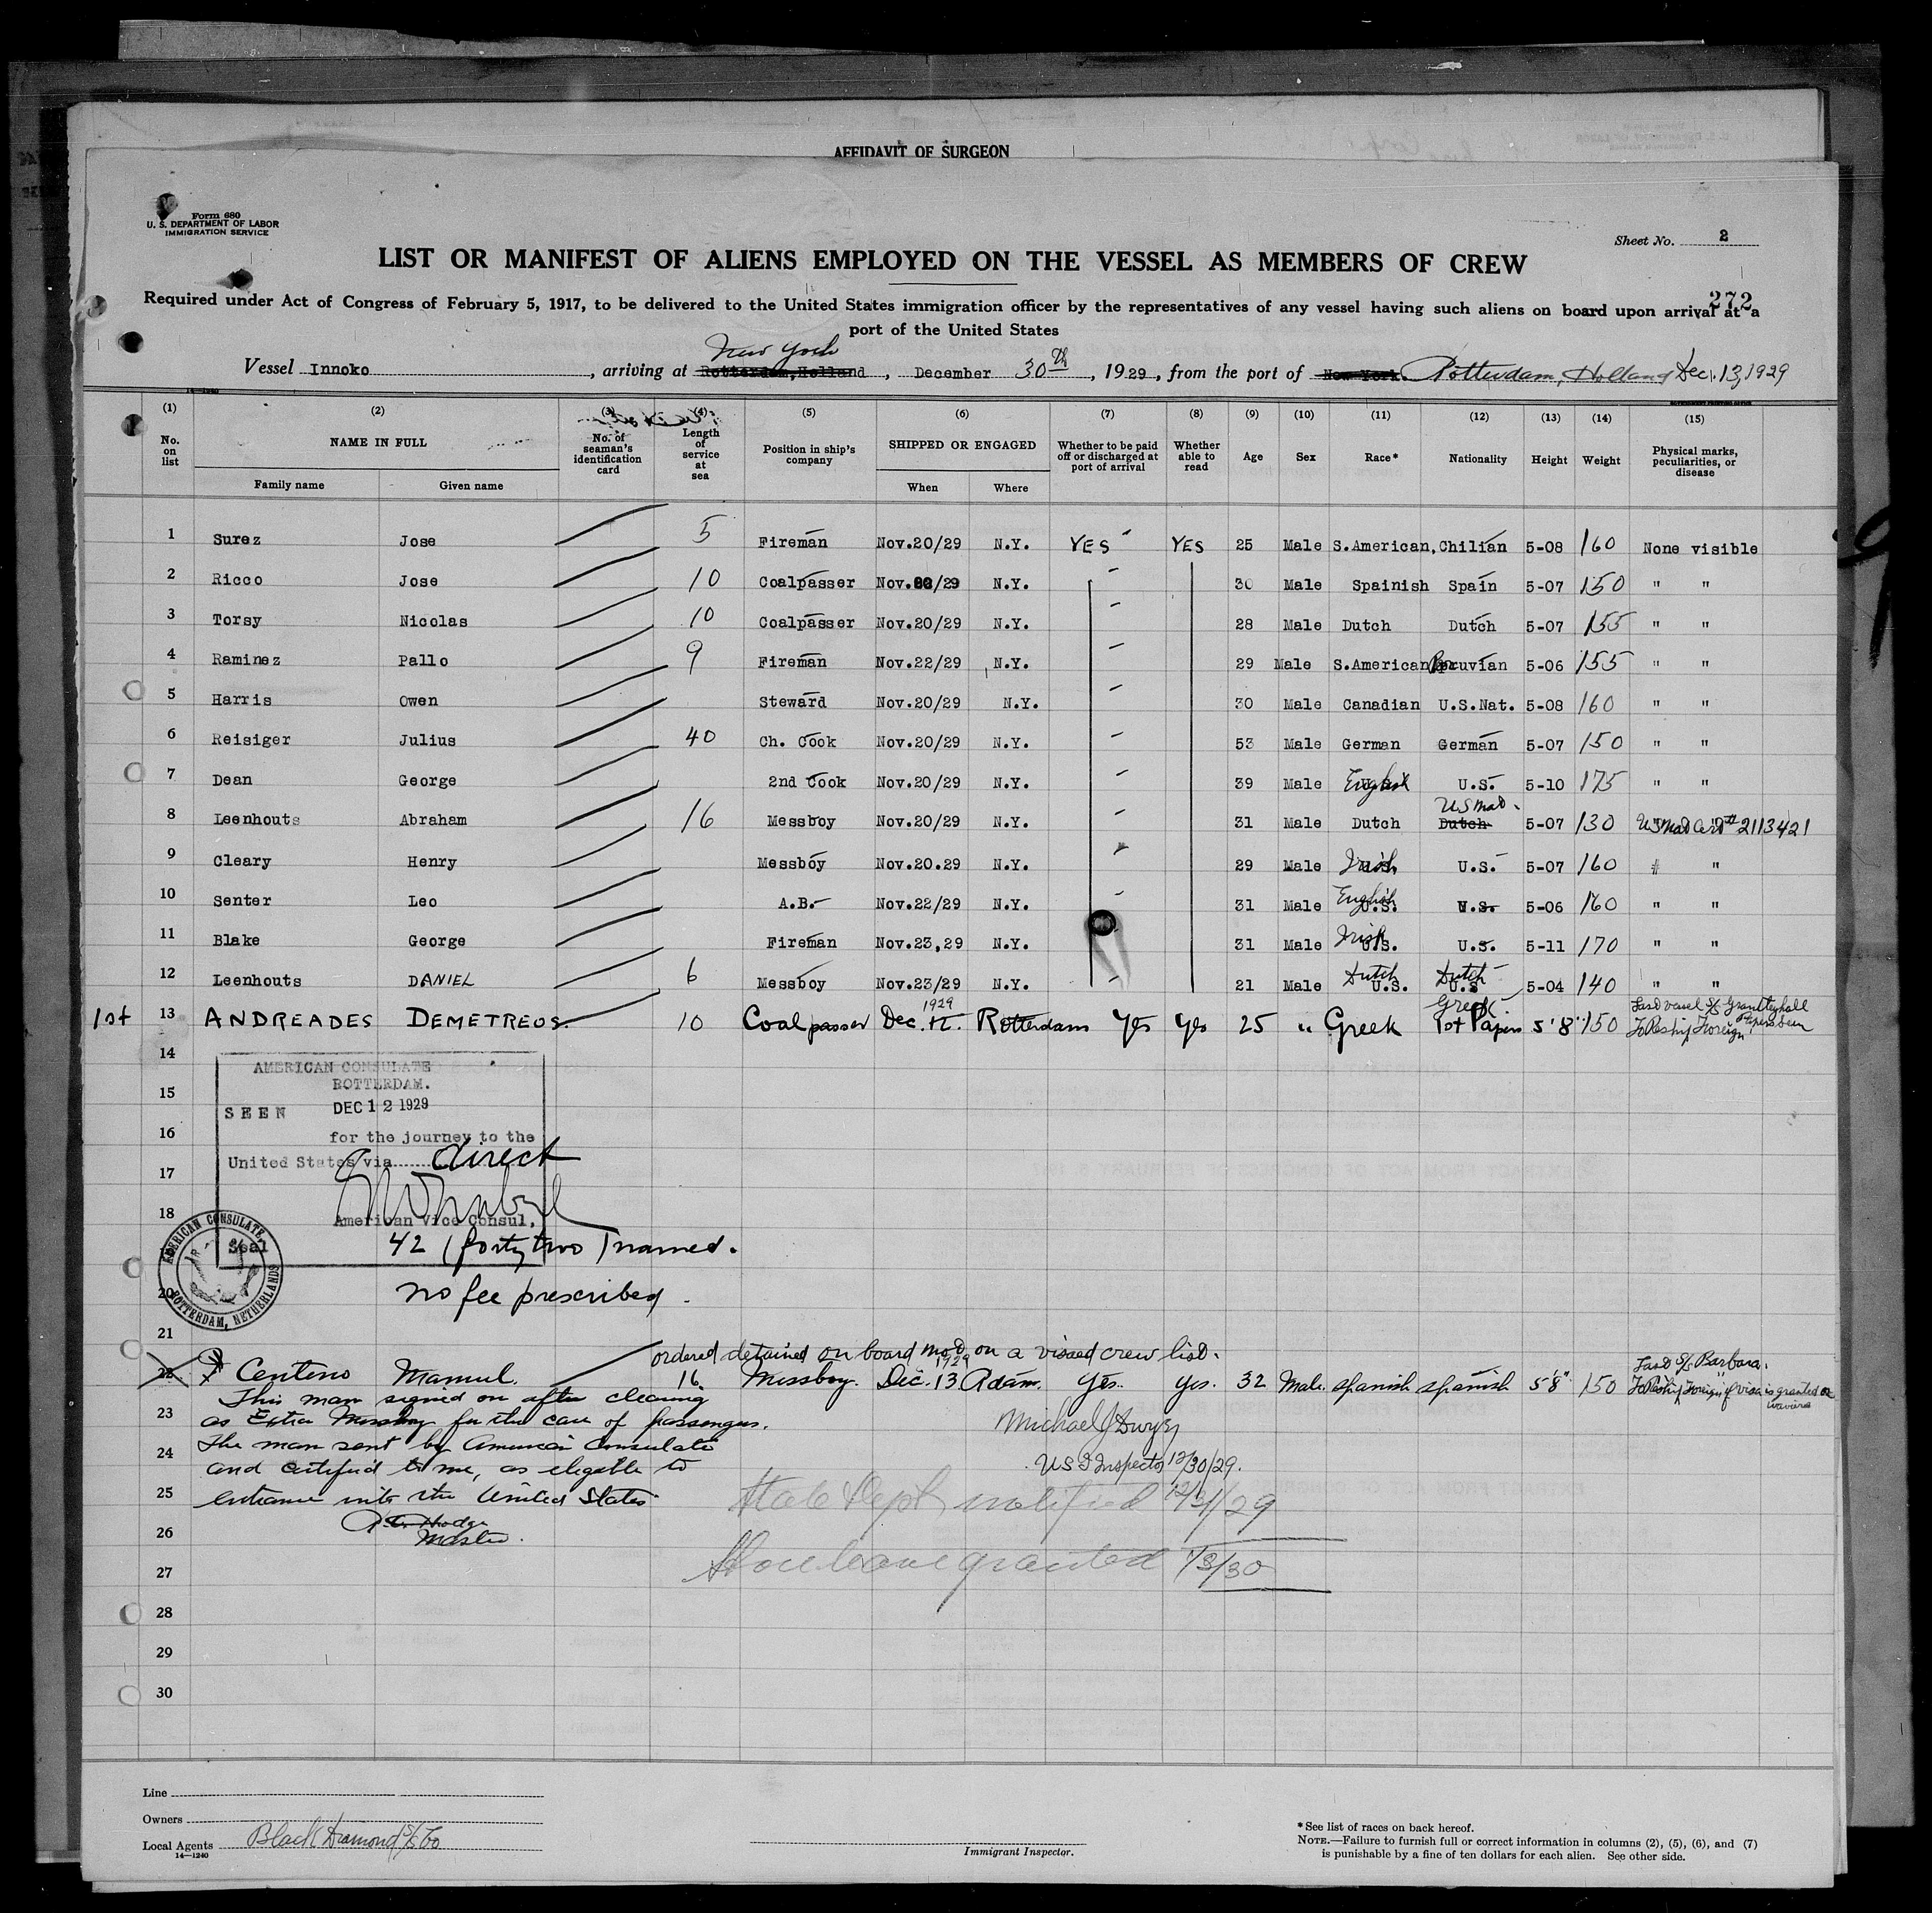 AFFIDAVIT OF SURGEON
Form 680
U. S. DEPARTMENT OF LABOR
IMMIGRATION SERVICE
Sheet No. 2
LIST OR MANIFEST OF ALIENS EMPLOYED ON THE VESSEL AS MEMBERS OF CREW
272
Required under Act of Congress of February 5, 1917, to be delivered to the United States immigration officer by the representatives of any vessel having such aliens on board upon arrival at a
port of the United States
New York
Vessel Innoko, arriving at Rotterdam, Holland, December 30th, 1929, from the port of New York. Rotterdam, Holland Dec. 13, 1929
14—1240
(1) (2) (3) (4) (5) (6) (7) (8) (9) (10) (11) (12) (13) (14) (15)
No. on list NAME IN FULL No. of seaman's identification card Length of service at sea Position in ship's company SHIPPED OR ENGAGED Whether to be paid off or discharged at port of arrival Whether able to read Age Sex Race* Nationality Height Weight Physical marks, peculiarities, or disease
Family name Given name When Where
1 Surez Jose 5 Fireman Nov.20/29 N.Y. YES YES 25 Male S.American, Chilian 5-08 160 None visible
2 Ricco Jose 10 Coalpasser Nov. /29 N.Y. 30 Male Spainish Spain 5-07 150 " "
3 Torsy Nicolas 10 Coalpasser Nov.20/29 N.Y. 28 Male Dutch Dutch 5-07 155 " "
4 Raminez Pallo 9 Fireman Nov.22/29 N.Y. 29 Male S.American Peruvian 5-06 155 " "
5 Harris Owen Steward Nov.20/29 N.Y. 30 Male Canadian U.S.Nat. 5-08 160 " "
6 Reisiger Julius 40 Ch. Cook Nov.20/29 N.Y. 53 Male German German 5-07 150 " "
7 Dean George 2nd Cook Nov.20/29 N.Y. 39 Male English U.S. 5-10 175 " "
US Nat.
8 Leenhouts Abraham 16 Messboy Nov.20/29 N.Y. 31 Male Dutch Dutch 5-07 130 US Nat Cert # 2113421
9 Cleary Henry Messboy Nov.20.29 N.Y. 29 Male Irish U.S. 5-07 160 " "
10 Senter Leo A.B. Nov.22/29 N.Y. 31 Male English U.S. U.S. 5-06 160 " "
11 Blake George Fireman Nov.23,29 N.Y. 31 Male Irish U.S. U.S. 5-11 170 " "
12 Leenhouts DANIEL 6 Messboy Nov.23/29 N.Y. 21 Male Dutch U.S. Dutch U.S 5-04 140 " "
1929 Greek Last vessel S/S Grantleyhall
1st 13 ANDREADES DEMETREOS. 10 Coal passer Dec. 12. Rotterdam Yes Yes 25 " Greek 1st Papers 5'8" 150 To Reship Foreign Papers seen
14
AMERICAN CONSULATE
ROTTERDAM.
15
SEEN DEC 12 1929
16
for the journey to the
United States via direct
17
18
American Vice Consul,
Seal
42 (forty two) named.
AMERICAN CONSULATE, ROTTERDAM, NETHERLANDS
20
no fee prescribed.
21
ordered detained on board not on a visaed crew list.
1929 Last S/S Barbara.
22 Centeno Manuel. 16 Messboy. Dec. 13 Rdam. Yes. Yes. 32 Male. Spanish Spanish 5'8" 150 To Reship Foreign if visa is granted or waived
This man signed on after clearing
23 as Extra Messboy for the care of passengers.
Michael J Dwyer
24 The man sent by American Consulate
and certified to me, as elegable to
US I Inspector 12/30/29.
25 entrance into the United States
State Dept notified 12/31/29
Hodge
26 Master.
27 Shore leave granted 1/3/30
28
29
30
Line
Owners
Local Agents Black Diamond S/S Co
14—1240
Immigrant Inspector.
*See list of races on back hereof.
NOTE.—Failure to furnish full or correct information in columns (2), (5), (6), and (7)
is punishable by a fine of ten dollars for each alien. See other side.